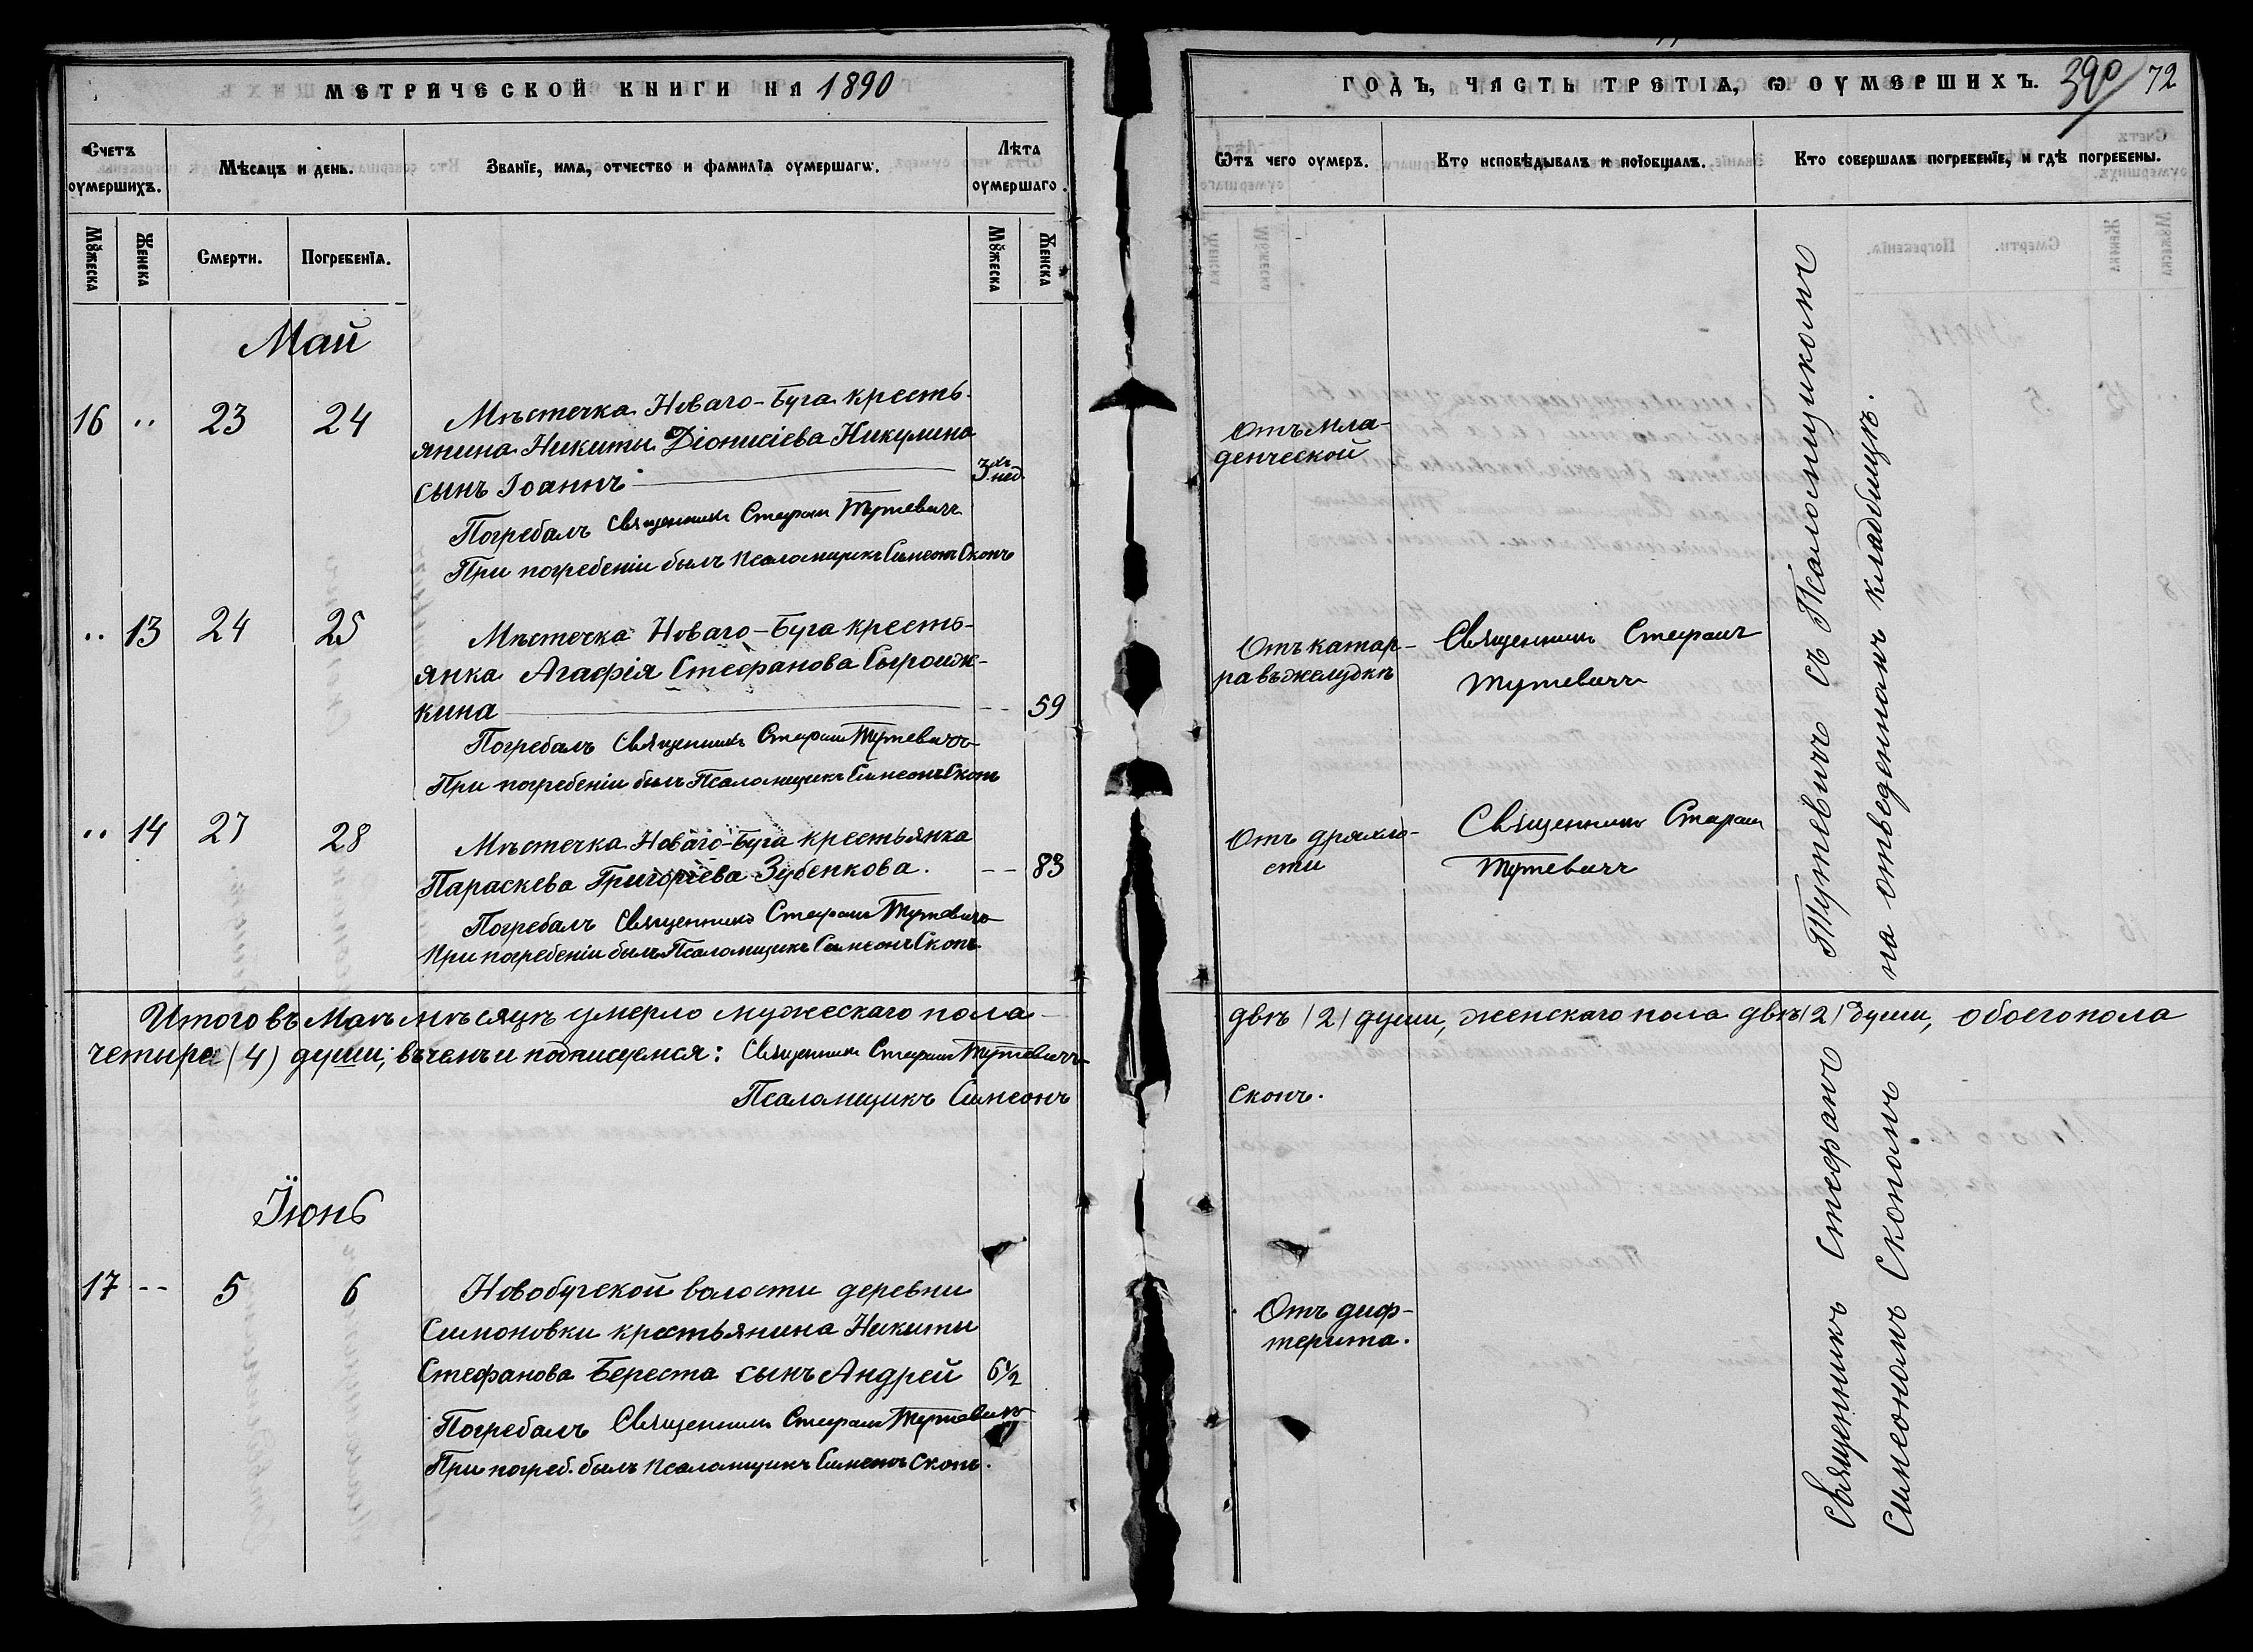 МЕТРИЧЕСКОЙ КНИГИ НА 1890
Счетъ оумершихъ.
Мѣсяцъ и день.
Званїе, имѧ, отчество и фамилїа оумершагѡ.
Лѣта оумершаго.
Мꙋжеска
Женска
Смерти.
Погребенїѧ.
Мꙋжеска
Женска
Май
16 ,, 23 24
Мѣстечка Новаго-Буга кресть-
янина Никиты Діонисіева Никулина
сынъ Іоаннъ 3хъ нед.
Погребалъ Священникъ Стефанъ Тутевичъ
При погребеніи былъ Псаломщикъ Симеонъ Скопъ
,, 13 24 25
Мѣстечка Новаго-Буга кресть-
янка Агафія Стефанова Сыроиж-
кина -- 59
Погребалъ Священникъ Стефанъ Тутевичъ
При погребеніи былъ Псаломщикъ Симеонъ Скопъ
,, 14 27 28
Мѣстечка Новаго-Буга крестьянка
Параскева Григоріева Зубенкова. -- 83
Погребалъ Священникъ Стефанъ Тутевичъ
При погребеніи былъ Псаломщикъ Симеонъ Скопъ.
Итого въ Маѣ мѣсяцѣ умерло мужескаго пола
четыре (4) души; въ чемъ и подписуемся: Священникъ Стефанъ Тутевичъ
Псаломщикъ Симеонъ
Їюнь
17 -- 5 6
Новобугской волости деревни
Симоновки крестьянина Никиты
Стефанова Береста сынъ Андрей 6½
Погребалъ Священникъ Стефанъ Тутевичъ
При погреб. былъ Псаломщикъ Симеонъ Скопъ.
ГОДЪ, ЧАСТЬ ТРЕТІѦ, Ѡ ОУМЕРШИХЪ. 390/72
Ѿтъ чего оумеръ.
Кто исповѣдывалъ и пріобщалъ.
Кто совершалъ погребенїе, и гдѣ погребены.
Отъ мла-
денческой
Отъ катар-
ра въ желудкѣ
Священникъ Стефанъ
Тутевичъ
Отъ дряхло-
сти
Священникъ Стефанъ
Тутевичъ
двѣ (2) души, женскаго пола двѣ (2) души, обоего пола
Скопъ.
Отъ диф-
терита.
Священникъ Стефанъ Тутевичъ съ Псаломщикомъ
Симеономъ Скопомъ на отведенномъ кладбищѣ.